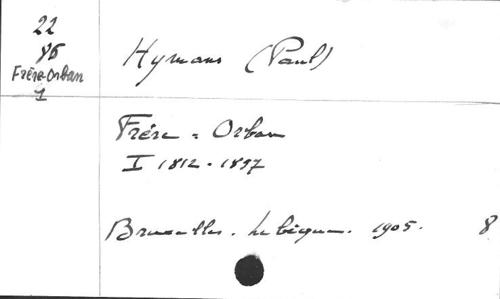 22
86
Frère-Orban
1
Hymans (Paul)
Frère-Orban
I 1812-1857
Bruxelles. Lebègue. 1905. 8